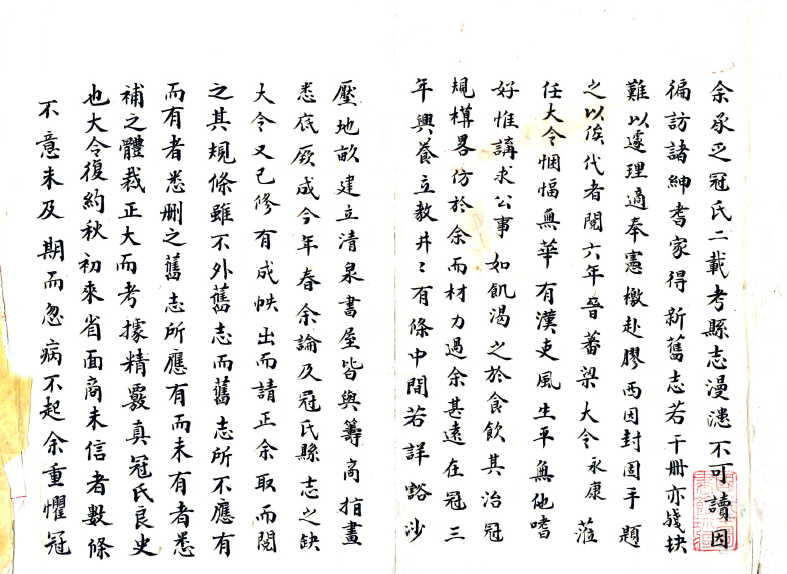 余承乏冠氏二載考縣志漫漶不可讀因
徧訪諸紳耆家得新舊志若干册亦殘缺
難以遽理適奉憲檄赴膠西因封固手題
之以俟代者閱六年晉蕃梁大令永康蒞
任大令悃愊無華有漢吏風生平無他嗜
好惟講求公事如飢渴之於食飲其治冠
規橅畧仿於余而材力過余甚遠在冠三
年興養立教井〻有條中間若詳豁沙
壓地畝建立清泉書屋皆與籌商指畫
悉底厥成今年春余論及冠氏縣志之缺
大令又已修有成帙出而請正余取而閱
之其規條雖不外舊志而舊志所不應有
而有者悉删之舊志所應有而未有者悉
補之體裁正大而考據精覈真冠氏良史
也大令復約秋初來省面商未信者數條
不意未及期而忽病不起余重懼冠